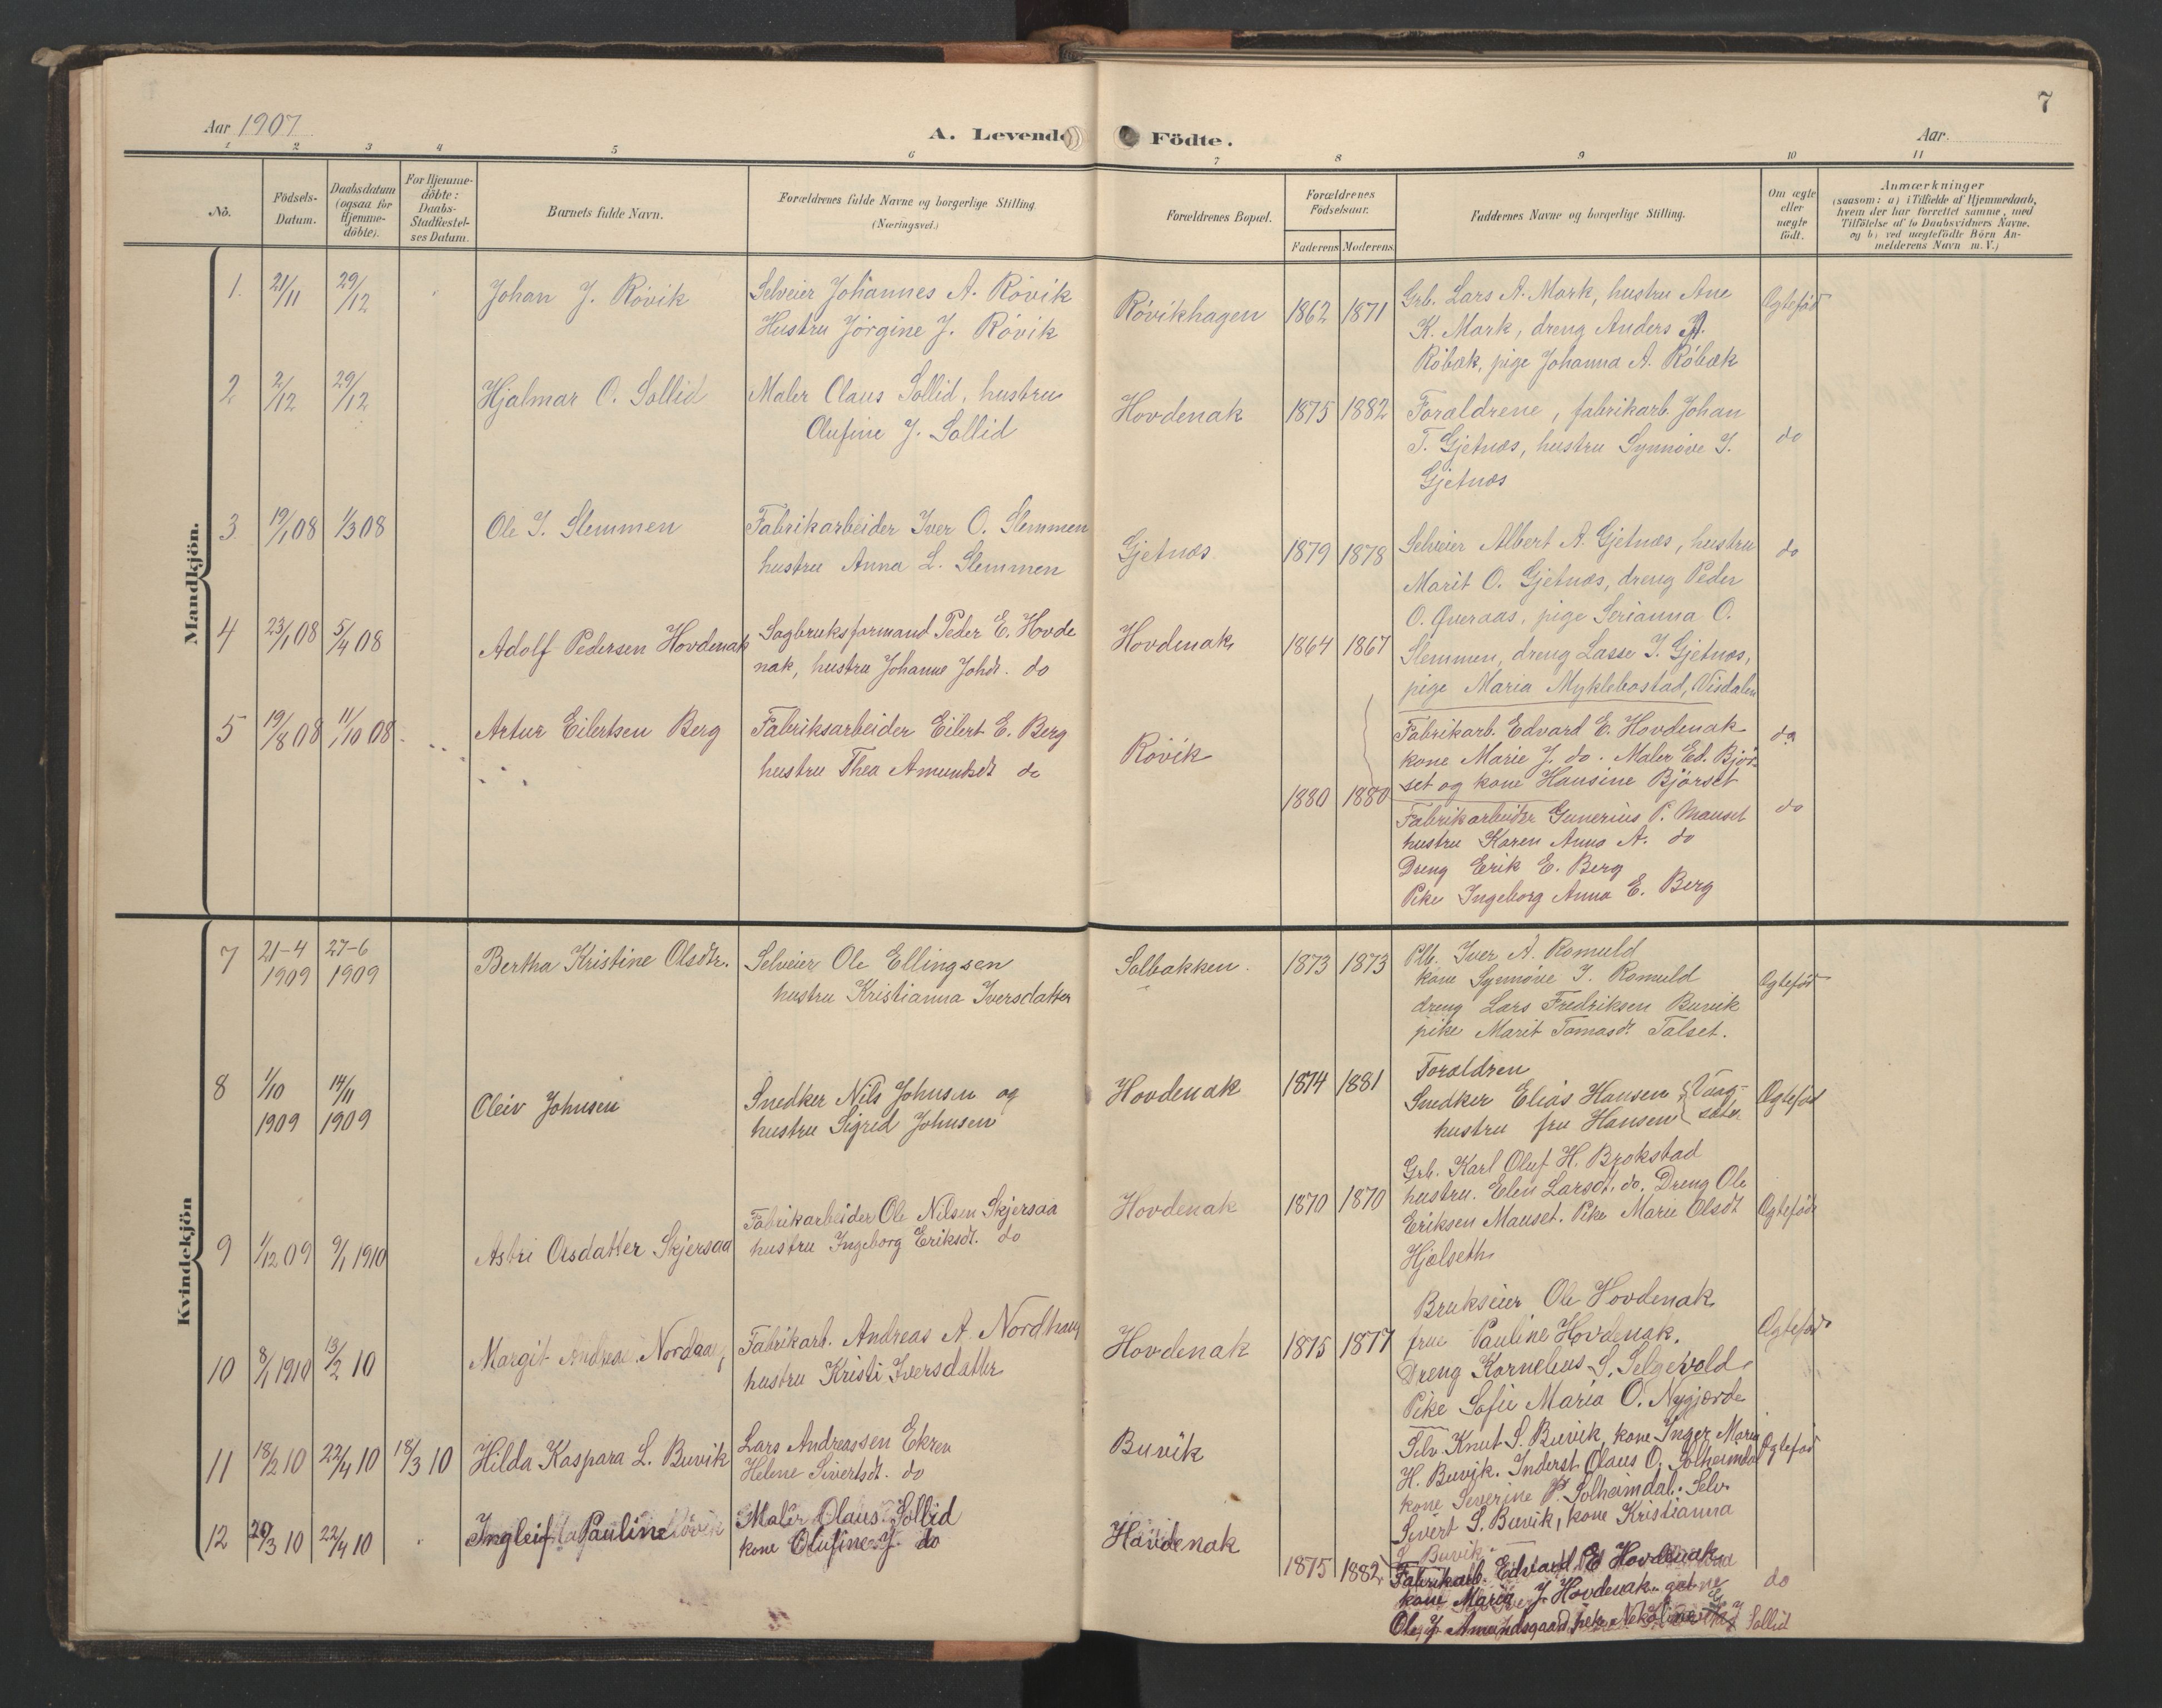 7
Aar 1907
A. Levende Födte.
Aar
1 2 3 4 5 6 7 8 9 10 11
No.
Födsels-
Datum.
Daabsdatum
(ogsaa for
Hjemme-
döbte).
For Hjemme-
döbte:
Daabs-
Stadfæstel-
ses Datum.
Barnets fulde Navn.
Forældrenes fulde Navne og borgerlige Stilling
(Næringsvei.)
Forældrenes Bopæl.
Forældrenes
Födselsaar.
Faderens Moderens
Faddernes Navne og borgerlige Stilling.
Om ægte
eller
uægte
födt.
Anmærkninger
(saasom: a) i Tilfælde af Hjemmedaab,
hvem der har forrettet samme, med
Tilföielse af to Daabsvidners Navne.
og b) ved uægtefödte Börn An-
melderens Navn m. V.)
Mandkjön.
1. 21/11 29/12
Johan J. Rövik
Selveier Johannes A. Rövik
Hustru Jörgine J. Rövik
Rövikhagen
1862 1871
Grb. Lars A. Mork, hustru Ane
K. Mork, dreng Anders A.
Röbæk, pige Johanna A. Röbæk
Ægtefød
2 2/12 29/12
Hjalmar O. Sollid
Maler Olaus Sollid, hustru
Olufine J. Sollid
Hovdenak
1875 1882
Forældrene, fabrikarb. Johan
T. Gjetnæs, hustru Synnöve I.
Gjetnæs
do
3 19/1 08 1/3 08
Ole I. Slemmen
Fabrikarbeider Iver O. Slemmen
hustru Anna L. Slemmen
Gjetnæs
1879 1878
Selveier Albert A. Gjetnæs, hustru
Marit O. Gjetnæs, dreng Peder
O. Överaas, pige Serianna O.
Slemmen, dreng Lasse I. Gjetnæs,
pige Maria Myklebostad, Visdalen
do
4 23/1 08 5/4 08
Adolf Pedersen Hovdenak
Sagbruksformand Peder E. Hovde
nak, hustru Johanne Johdt. do
Hovdenak
1864 1867
Fabrikarb. Edvard E. Hovdenak
kone Marie J. do. Maler Ed. Björ-
set og kone Hansine Bjørset
do
5 19/8 08 11/10 08
Artur Eilertsen Berg
Fabriksarbeider Eilert E. Berg
hustru Thea Amundsdt do
Rövik
1880 1880
Fabrikarbeider Gunerius P. Mauset
hustru Karen Anna A. do
Dreng Erik E. Berg
Pike Ingeborg Anna E. Berg
do
Kvindekjön
7 21-4 1909 27-6 1909
Bertha Kristine Olsdtr.
Selveier Ole Ellingsen
hustru Kristianna Iversdatter
Solbakken.
1873 1873
Plb. Iver A. Romuld
kone Synnöve I. Romuld
dreng Lars Fredriksen Buvik
pike Marit Tomasdt. Talset.
Ægtefød
8 1/10 1909 14/11 1909
Oleiv Johnsen
Snedker Nils Johnsen og
hustru Sigrid Johnsen
Hovdenak
1874 1881
Forældren
Snedker Elias Hansen
hustru fru Hansen
Ægtefød
9 1/12 09 9/1 1910
Astri Osdatter Skjersaa
Fabrikarbeider Ole Nilsen Skjersaa
hustru Ingeborg Eriksdt. do
Hovdenak
1870 1870
Grb. Karl Oluf H. Brokstad
hustru. Elen Larsdt. do. Dreng Ole
Eriksen Mauset. Pike Marie Olsdt
Hjelseth
Ægtefød
10 8/1 1910 13/2 10
Margit Nordaa
Fabrikarb. Andreas A. Nordhaug
hustru Kristi Iversdatter
Hovdenak
1875 1877
Brukseier Ole Hovdenak
frue Pauline Hovdenak,
Dreng Kornelius S. Selgevold
Pike Sofie Maria O. Nygjerde
Ægtefød
11 18/2 10 22/4 10 18/3 10
Hilda Kaspara L. Buvik
Lars Andreassen Ekren
Helene Sivertsdt. do
Buvik
Selv. Knut S. Buvik, kone Inger Maria
H. Buvik. Inderst Olaus O. Solheimdal
kone Severine P. Solheimdal. Selv.
Sivert S. Buvik, kone Kristianna
Buvik
Ægtefød
12 3 10 22/4 10
Ingleif Pauline
Maler Olaus Sollid
kone Olufine J. do
Hovdenak
1875 1882
Fabrikarb. Edvard E Hovdenak
kone Maria J. Hovdenak
Ole J Amundsgaard, Sollid
do